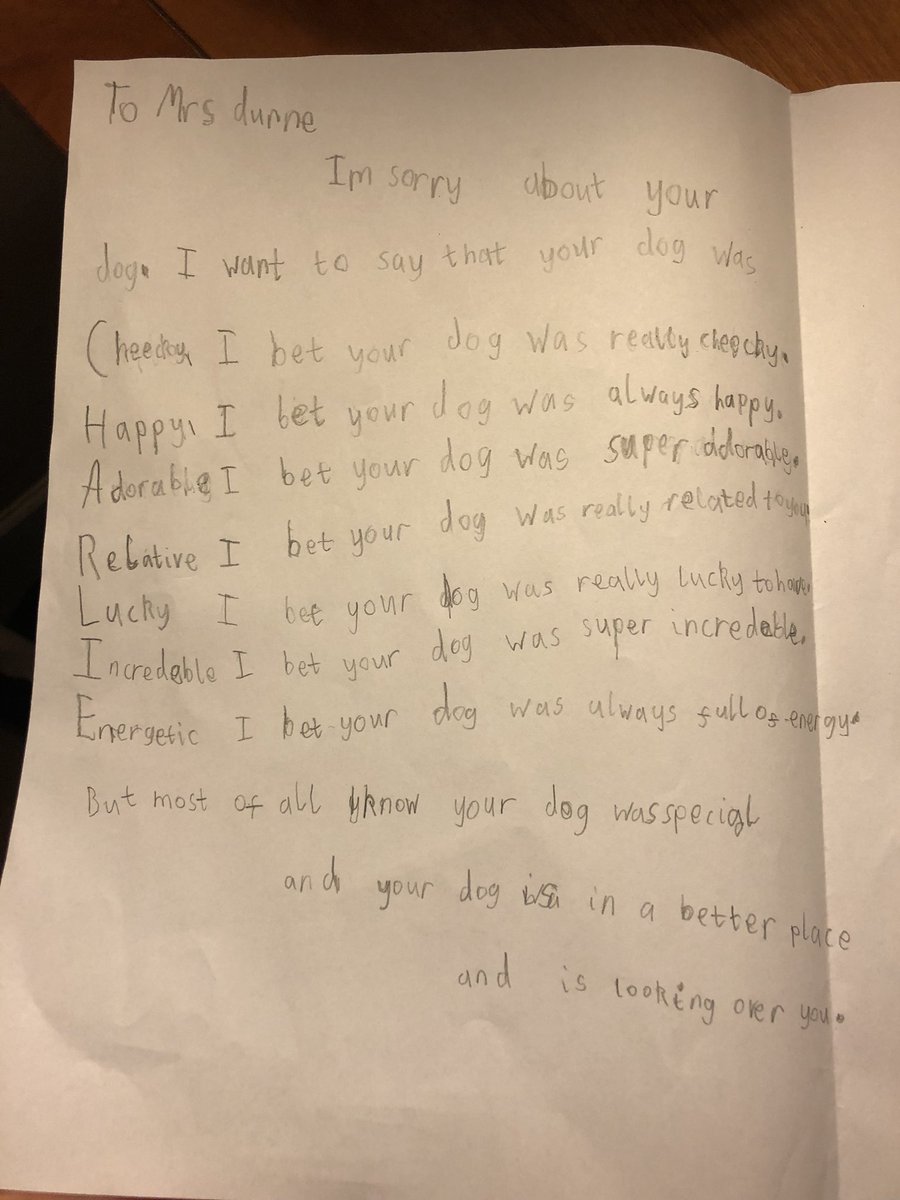 To Mrs dunne
Im sorry about your
dog. I want to say that your dog was
Cheecky, I bet your dog was really cheecky.
Happy, I bet your dog was always happy.
Adorable I bet your dog was super adorable.
Relative I bet your dog was really related to you
Lucky I bet your dog was really lucky to have
Incredable I bet your dog was super incredable.
Energetic I bet your dog was always full of energy.
But most of all I know your dog was special
and your dog is in a better place
and is looking over you.